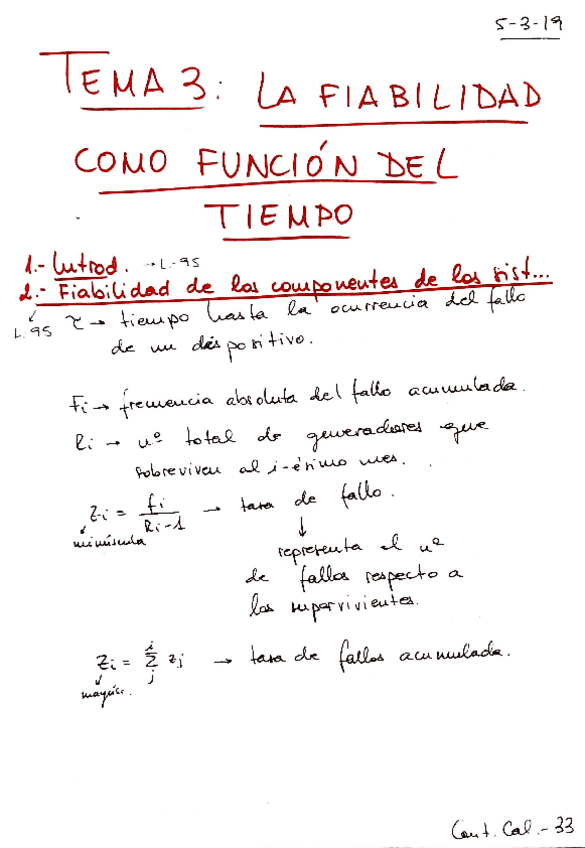 5-3-19
TEMA 3: LA FIABILIDAD
COMO FUNCIÓN DEL
TIEMPO
1.- Introd. → L.-95
2.- Fiabilidad de los componentes de los sist...
L. 95 τ → tiempo hasta la ocurrencia del fallo
de un dispositivo.
Fi → frecuencia absoluta del fallo acumulada.
Ri → nº total de generadores que
sobreviven al i-ésimo mes.
zi = fi / Ri-1 → tasa de fallo.
minúscula ↓
representa el nº
de fallos respecto a
los supervivientes.
Zi = Σ zj → tasa de fallos acumulada.
i
j
mayúsc.
Cont. Cal.- 33